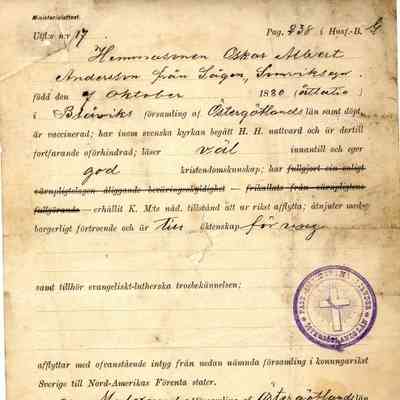 Ministerialattest.
Utfl.n:r 17. Pag. 238 i Husf.-B.
Hemmasonen Oskar Albert
Anderson från
född den 7 Oktober 1880 (åttatio)
i Blåviks församling af Östergötlands län samt döpt,
är vaccinerad; har inom svenska kyrkan begått H. H. nattvard och är dertill
fortfarande oförhindrad; läser väl innantill och eger
god kristendomskunskap; har fullgjort sin enligt
värnpligtslagen åliggande beväringsskyldighet — frikallats från värnpligtens
fullgörande — erhållit K. M:ts nåd. tillstånd att ur riket afflytta; åtnjuter med-
borgerligt förtroende och är till äktenskap för ung
samt tillhör evangeliskt-lutherska trosbekännelsen;
afflyttar med ofvanstående intyg från nedan nämnda församling i konungariket
Sverige till Nord-Amerikas Förenta stater.
församling af Östergötlands län